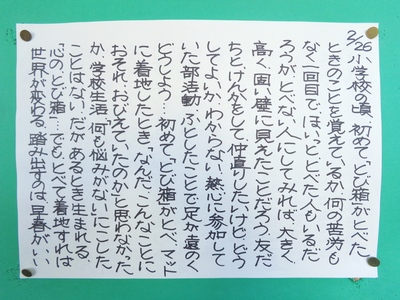 2/26
小学校の頃、初めて「とび箱がとべた」
ときのことを覚えているか。何の苦労も
なく一回目でほいっととべた人もいるだ
ろうが、とべない人にしてみれば、大きく
高く、固い壁に見えたことだろう。友だ
ちとけんかをして、仲直りしたいけど、どう
してよいかわからない。熱心に参加して
いた部活動、ふとしたことで足が遠のく
どうしよう…初めて「とび箱がとべ」、マット
に着地したとき、なんだ、こんなことに
おそれ、おびえていたのかと思わなかった
か。学校生活、何も悩みがない、にこした
ことはない。だが、あるとき生まれる、
「心のとび箱」…でも、とべて着地すれば
世界が変わる。踏み出すのは、早春がいい